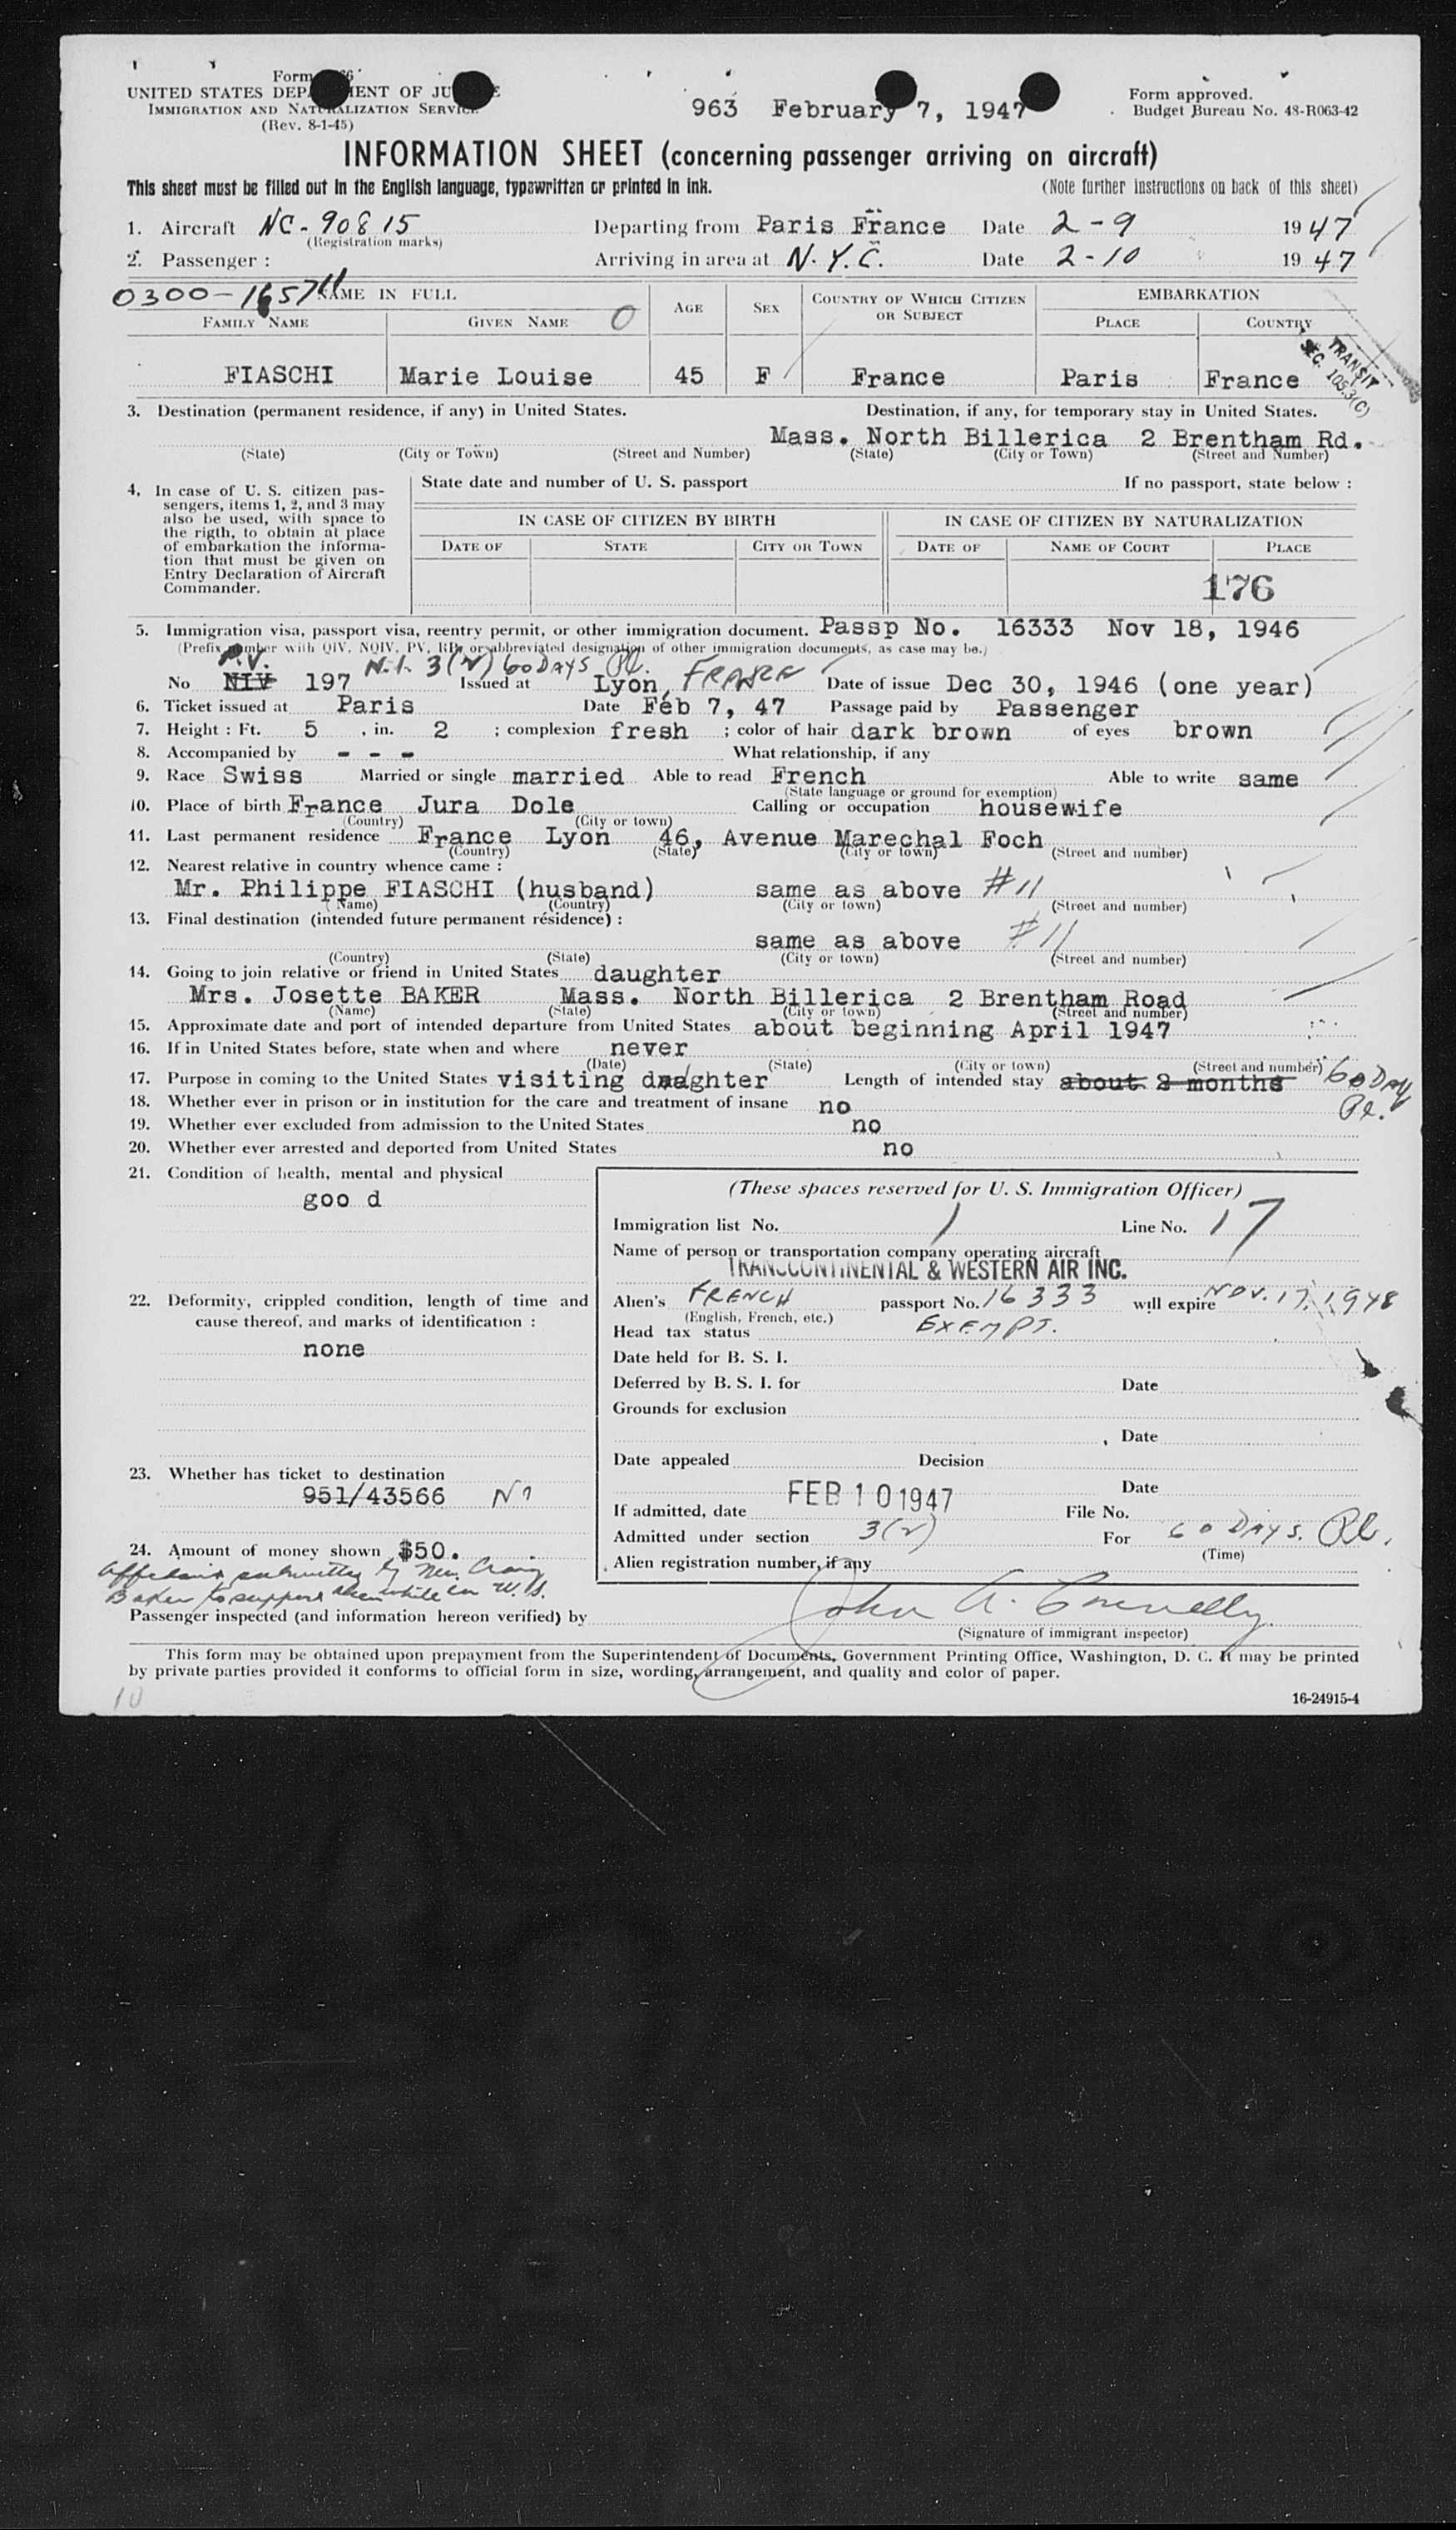 Form
UNITED STATES DEPARTMENT OF JUSTICE
IMMIGRATION AND NATURALIZATION SERVICE
(Rev. 8-1-45)
963 February 7, 1947
Form approved.
Budget Bureau No. 43-R063-42
INFORMATION SHEET (concerning passenger arriving on aircraft)
This sheet must be filled out in the English language, typewritten or printed in ink.
(Note further instructions on back of this sheet)
1. Aircraft NC-90815 Departing from Paris France Date 2-9 1947
(Registration marks)
2. Passenger : Arriving in area at N.Y.C. Date 2-10 1947
0300-1657 NAME IN FULL
FAMILY NAME GIVEN NAME O AGE SEX COUNTRY OF WHICH CITIZEN OR SUBJECT EMBARKATION PLACE COUNTRY
TRANSIT
SEC. 105.3(C)
FIASCHI Marie Louise 45 F France Paris France
3. Destination (permanent residence, if any) in United States. Destination, if any, for temporary stay in United States.
Mass. North Billerica 2 Brentham Rd.
(State) (City or Town) (Street and Number) (State) (City or Town) (Street and Number)
4. In case of U. S. citizen passengers, items 1, 2, and 3 may
also be used, with space to
the rigth, to obtain at place
of embarkation the information
that must be given on
Entry Declaration of Aircraft
Commander.
State date and number of U. S. passport If no passport, state below :
IN CASE OF CITIZEN BY BIRTH IN CASE OF CITIZEN BY NATURALIZATION
DATE OF STATE CITY OR TOWN DATE OF NAME OF COURT PLACE
176
5. Immigration visa, passport visa, reentry permit, or other immigration document. Passp No. 16333 Nov 18, 1946
(Prefix number with QIV, NQIV, PV, RP, or abbreviated designation of other immigration documents, as case may be.)
P.V. N.I. 3(2) 60 DAYS
No NIV 197 Issued at Lyon, FRANCE Date of issue Dec 30, 1946 (one year)
6. Ticket issued at Paris Date Feb 7, 47 Passage paid by Passenger
7. Height : Ft. 5 , in. 2 ; complexion fresh ; color of hair dark brown of eyes brown
8. Accompanied by - - - What relationship, if any
9. Race Swiss Married or single married Able to read French Able to write same
(State language or ground for exemption)
10. Place of birth France Jura Dole Calling or occupation housewife
(Country) (City or town)
11. Last permanent residence France Lyon 46, Avenue Marechal Foch
(Country) (State) (City or town) (Street and number)
12. Nearest relative in country whence came :
Mr. Philippe FIASCHI (husband) same as above #11
(Name) (Country) (City or town) (Street and number)
13. Final destination (intended future permanent résidence) :
same as above #11
(Country) (State) (City or town) (Street and number)
14. Going to join relative or friend in United States daughter
Mrs. Josette BAKER Mass. North Billerica 2 Brentham Road
(Name) (State) (City or town) (Street and number)
15. Approximate date and port of intended departure from United States about beginning April 1947
16. If in United States before, state when and where never
(Date) (State) (City or town) (Street and number)
17. Purpose in coming to the United States visiting daughter Length of intended stay about 2 months 60 DAY
18. Whether ever in prison or in institution for the care and treatment of insane no
19. Whether ever excluded from admission to the United States no
20. Whether ever arrested and deported from United States no
21. Condition of health, mental and physical
goo d
22. Deformity, crippled condition, length of time and
cause thereof, and marks of identification :
none
23. Whether has ticket to destination
951/43566
24. Amount of money shown $50.
(These spaces reserved for U. S. Immigration Officer)
Immigration list No. 1 Line No. 17
Name of person or transportation company operating aircraft
TRANSCONTINENTAL & WESTERN AIR INC.
Alien's FRENCH passport No. 16333 will expire NOV. 17, 1948
(English, French, etc.)
Head tax status EXEMPT.
Date held for B. S. I.
Deferred by B. S. I. for Date
Grounds for exclusion
, Date
Date appealed Decision
Date
If admitted, date FEB 10 1947 File No.
Admitted under section 3(2) For 60 DAYS.
(Time)
Alien registration number, if any
Baker to support alien while in U.S.
Passenger inspected (and information hereon verified) by John A. Connelly
(Signature of immigrant inspector)
This form may be obtained upon prepayment from the Superintendent of Documents, Government Printing Office, Washington, D. C. It may be printed
by private parties provided it conforms to official form in size, wording, arrangement, and quality and color of paper.
10
16-24915-4